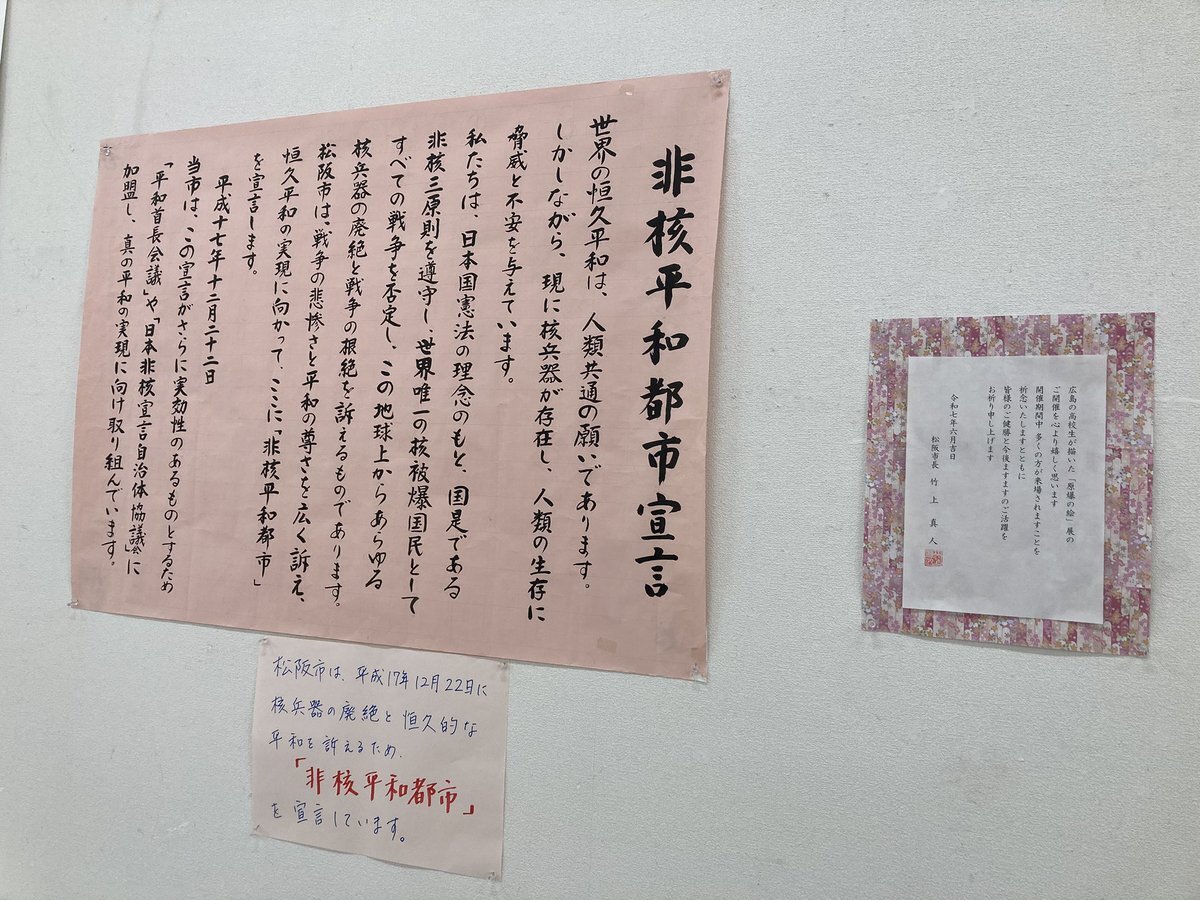 非核平和都市宣言
世界の恒久平和は、人類共通の願いであります。
しかしながら、現に核兵器が存在し、人類の生存に
脅威と不安を与えています。
私たちは、日本国憲法の理念のもと、国是である
非核三原則を遵守し、世界唯一の核被爆国民として
すべての戦争を否定し、この地球上からあらゆる
核兵器の廃絶と戦争の根絶を訴えるものであります。
松阪市は、戦争の悲惨さと平和の尊さを広く訴え、
恒久平和の実現に向かって、ここに、「非核平和都市」
を宣言します。
平成十七年十二月二十二日
当市は、この宣言がさらに実効性のあるものとするため
「平和首長会議」や「日本非核宣言自治体協議会」に
加盟し、真の平和の実現に向け取り組んでいます。
松阪市は、平成17年12月22日に
核兵器の廃絶と恒久的な
平和を訴えるため、
「非核平和都市」
を宣言しています。
広島の高校生が描いた「原爆の絵」展の
ご開催を心より嬉しく思います
開催期間中 多くの方が来場されますことを
祈念いたしますとともに
皆様のご健勝と今後ますますのご活躍を
お祈り申し上げます
令和七年六月吉日
松阪市長 竹上真人